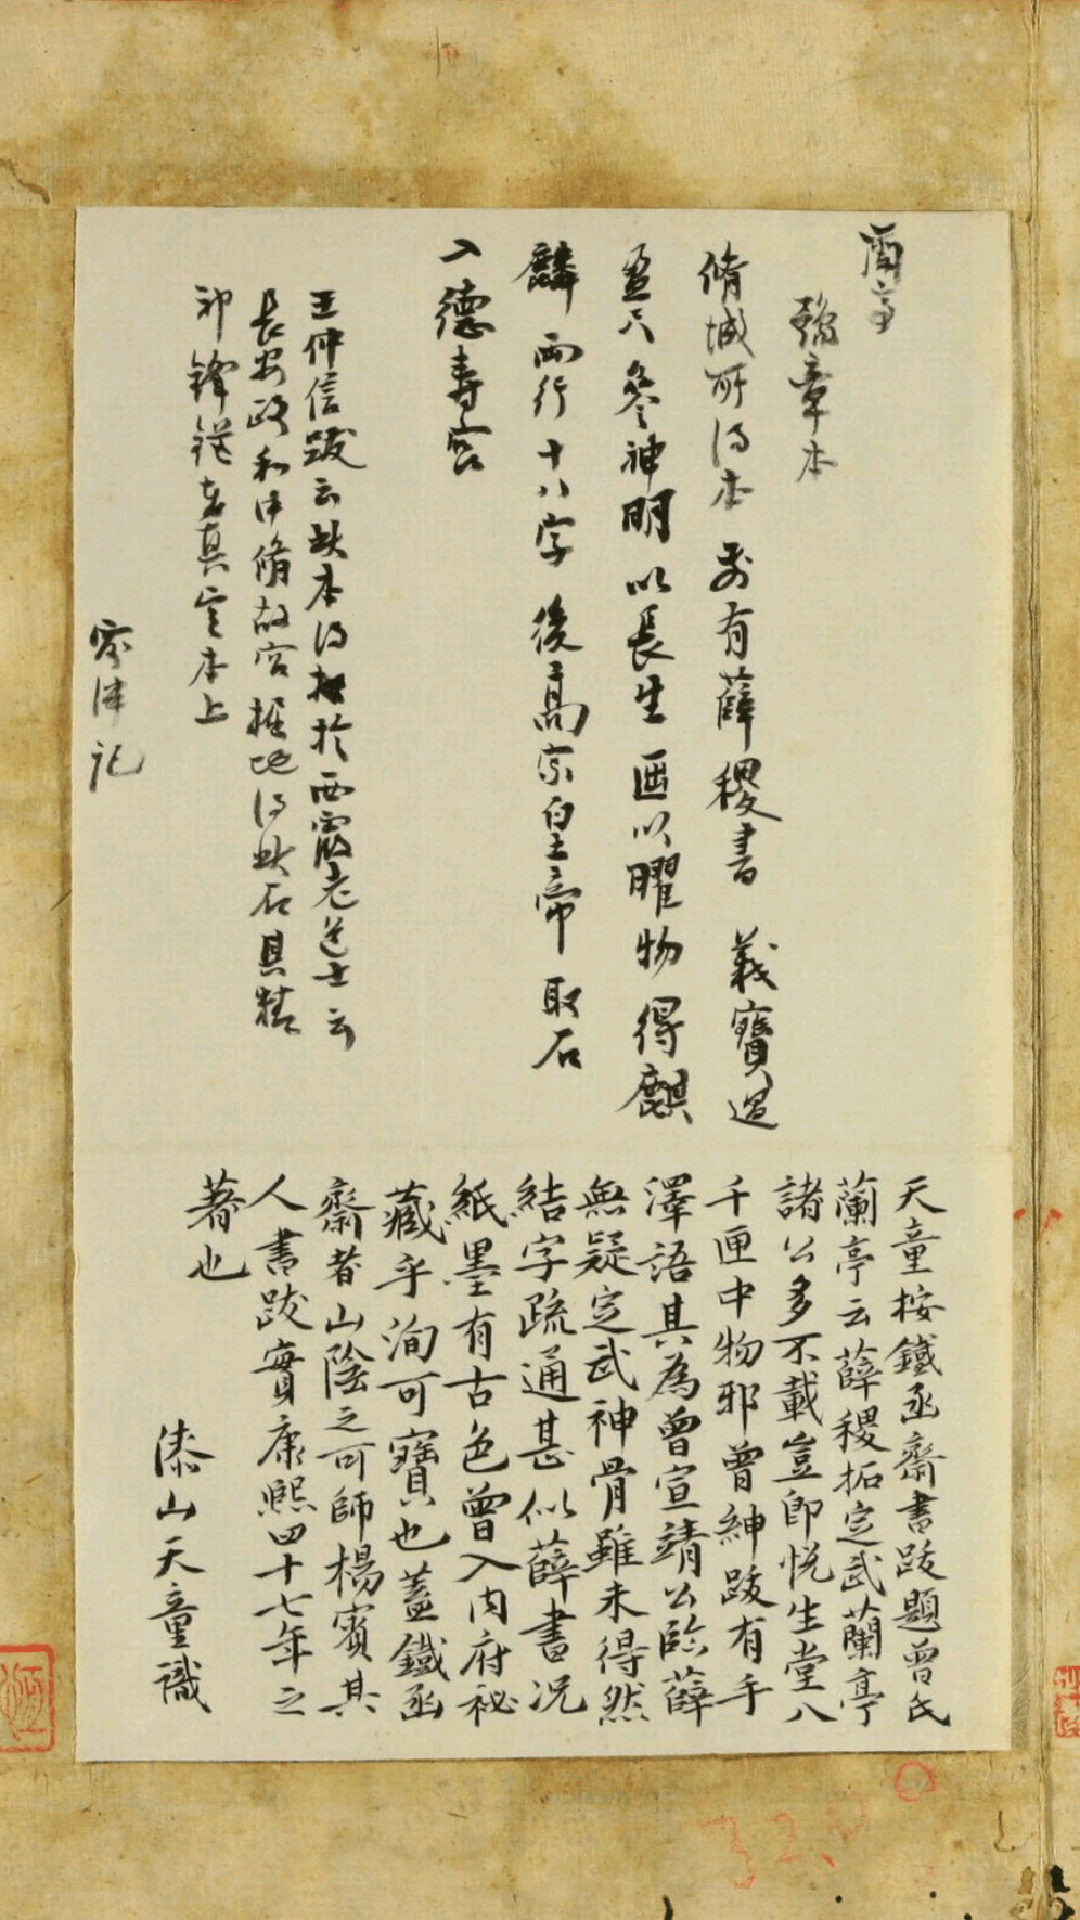 蘭亭
豫章本
脩城所得本前有薛稷書義寶過
盈尺參神明以長生画以曜物得麒
麟兩行十八字後高宗皇帝取石
入德壽宮
王仲信跋云此本得於西霞老道士云
長安政和中脩故宮掘地得此石具精
神鋒鋩在真定本上
天童按鐵函齋書跋題曾氏
蘭亭云薛稷拓定武蘭亭
諸公多不載豈即悅生堂八
千匣中物邪曾紳跋有手
澤語其為曾宣靖公臨薛
無疑定武神骨雖未得然
結字疏通甚似薛書況
紙墨有古色曾入內府祕
藏乎洵可寶也蓋鐵函
齋者山陰之可師楊賓其
人書跋實康熙四十七年之
著也
漆山天童識